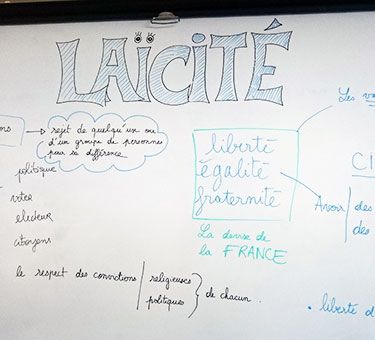 LAÏCITÉ
rejet de quelqu'un ou
d'un groupe de personnes
pour sa différence
politique
voter
électeur
citoyens
le respect des convictions
religieuses
politiques
de chacun.
liberté
égalité
fraternité
La devise de
la FRANCE
Les va
CI
Avoir
des
des
• liberté d